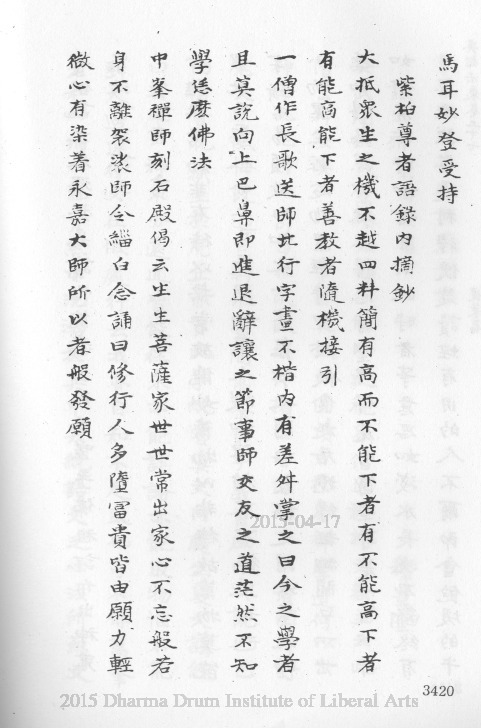 馬耳妙登受持
紫柏尊者語錄內摘鈔
大抵眾生之機不越四料簡有高而不能下者有不能高下者
有能高能下者善教者隨機接引
一僧作長歌送師北行字畫不楷內有差舛掌之曰今之學者
且莫說向上巴鼻即進退辭讓之節事師交友之道茫然不知
學恁麼佛法
中峯禪師刻石殿偈云生生菩薩家世世常出家心不忘般若
身不離袈裟師令緇白念誦曰修行人多墮冨貴皆由願力輕
微心有染着永嘉大師所以者般發願
2013-04-17
3420
2015 Dharma Drum Institute of Liberal Arts